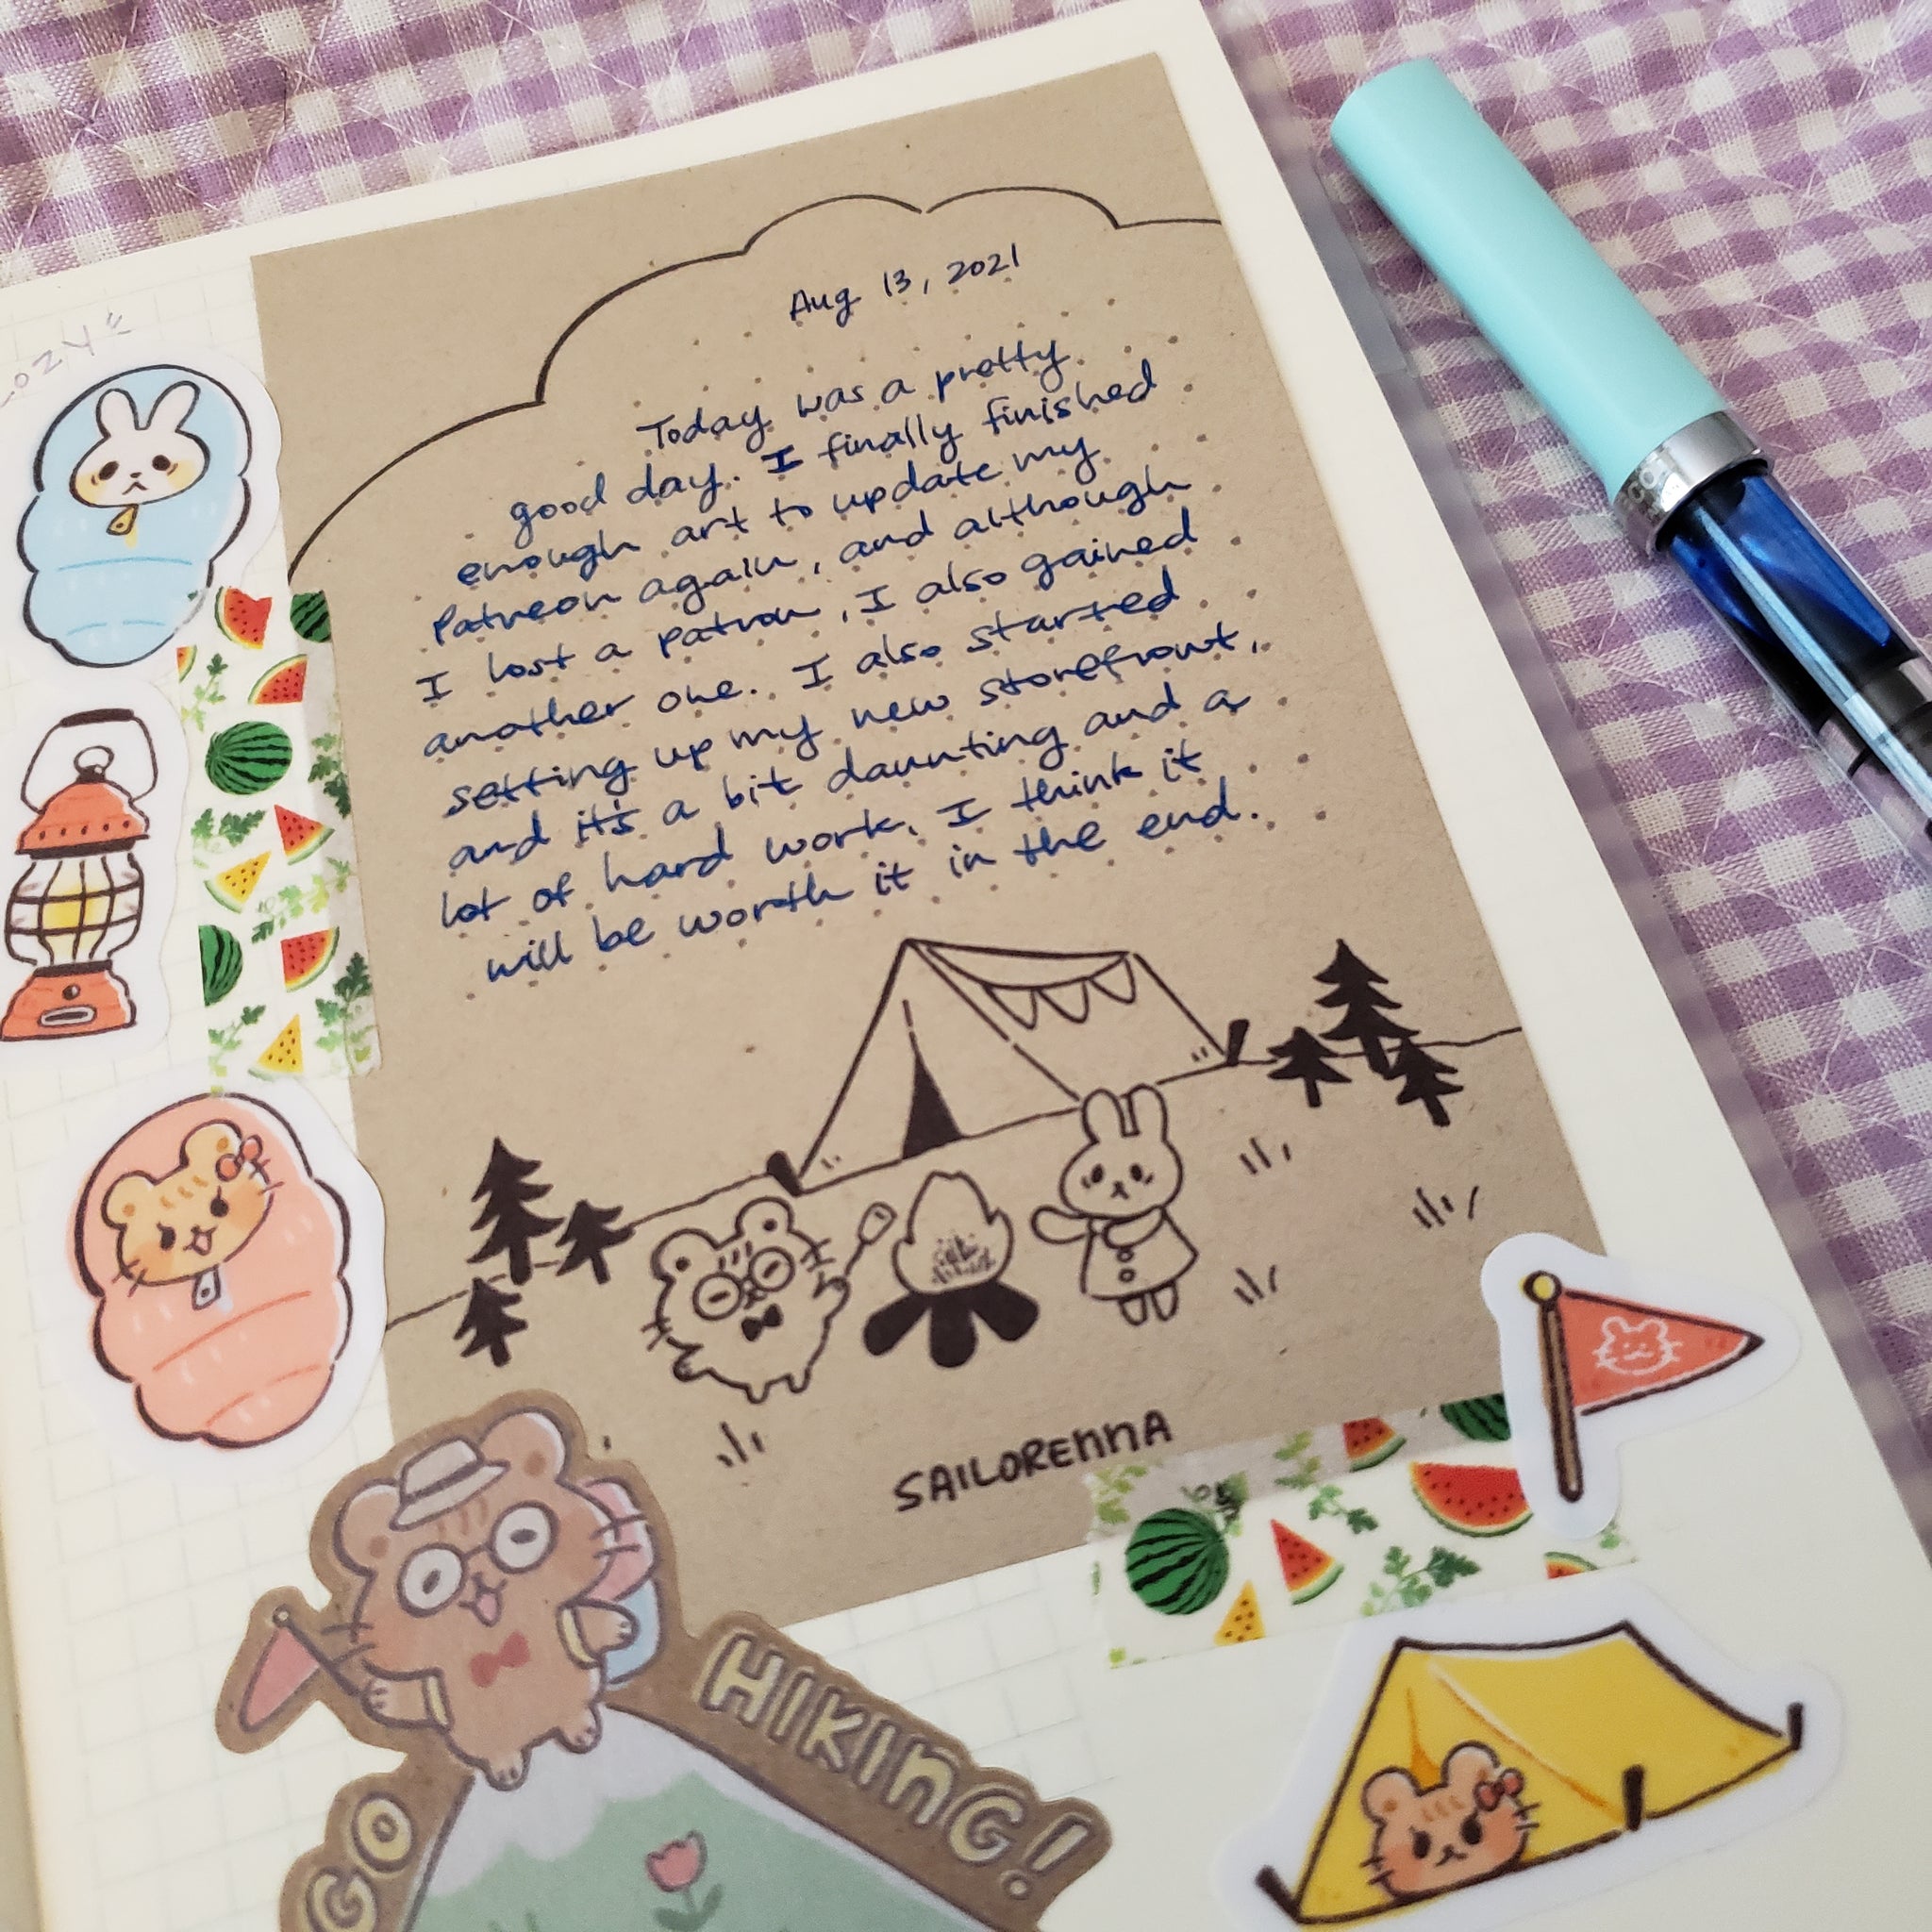 Aug 13, 2021
Today was a pretty
good day. I finally finished
enough art to update my
Patreon again, and although
I lost a patron, I also gained
another one. I also started
setting up my new storefront,
and it's a bit daunting and a
lot of hard work, I think it
will be worth it in the end.
SAILORENNA
GO
HIKING!